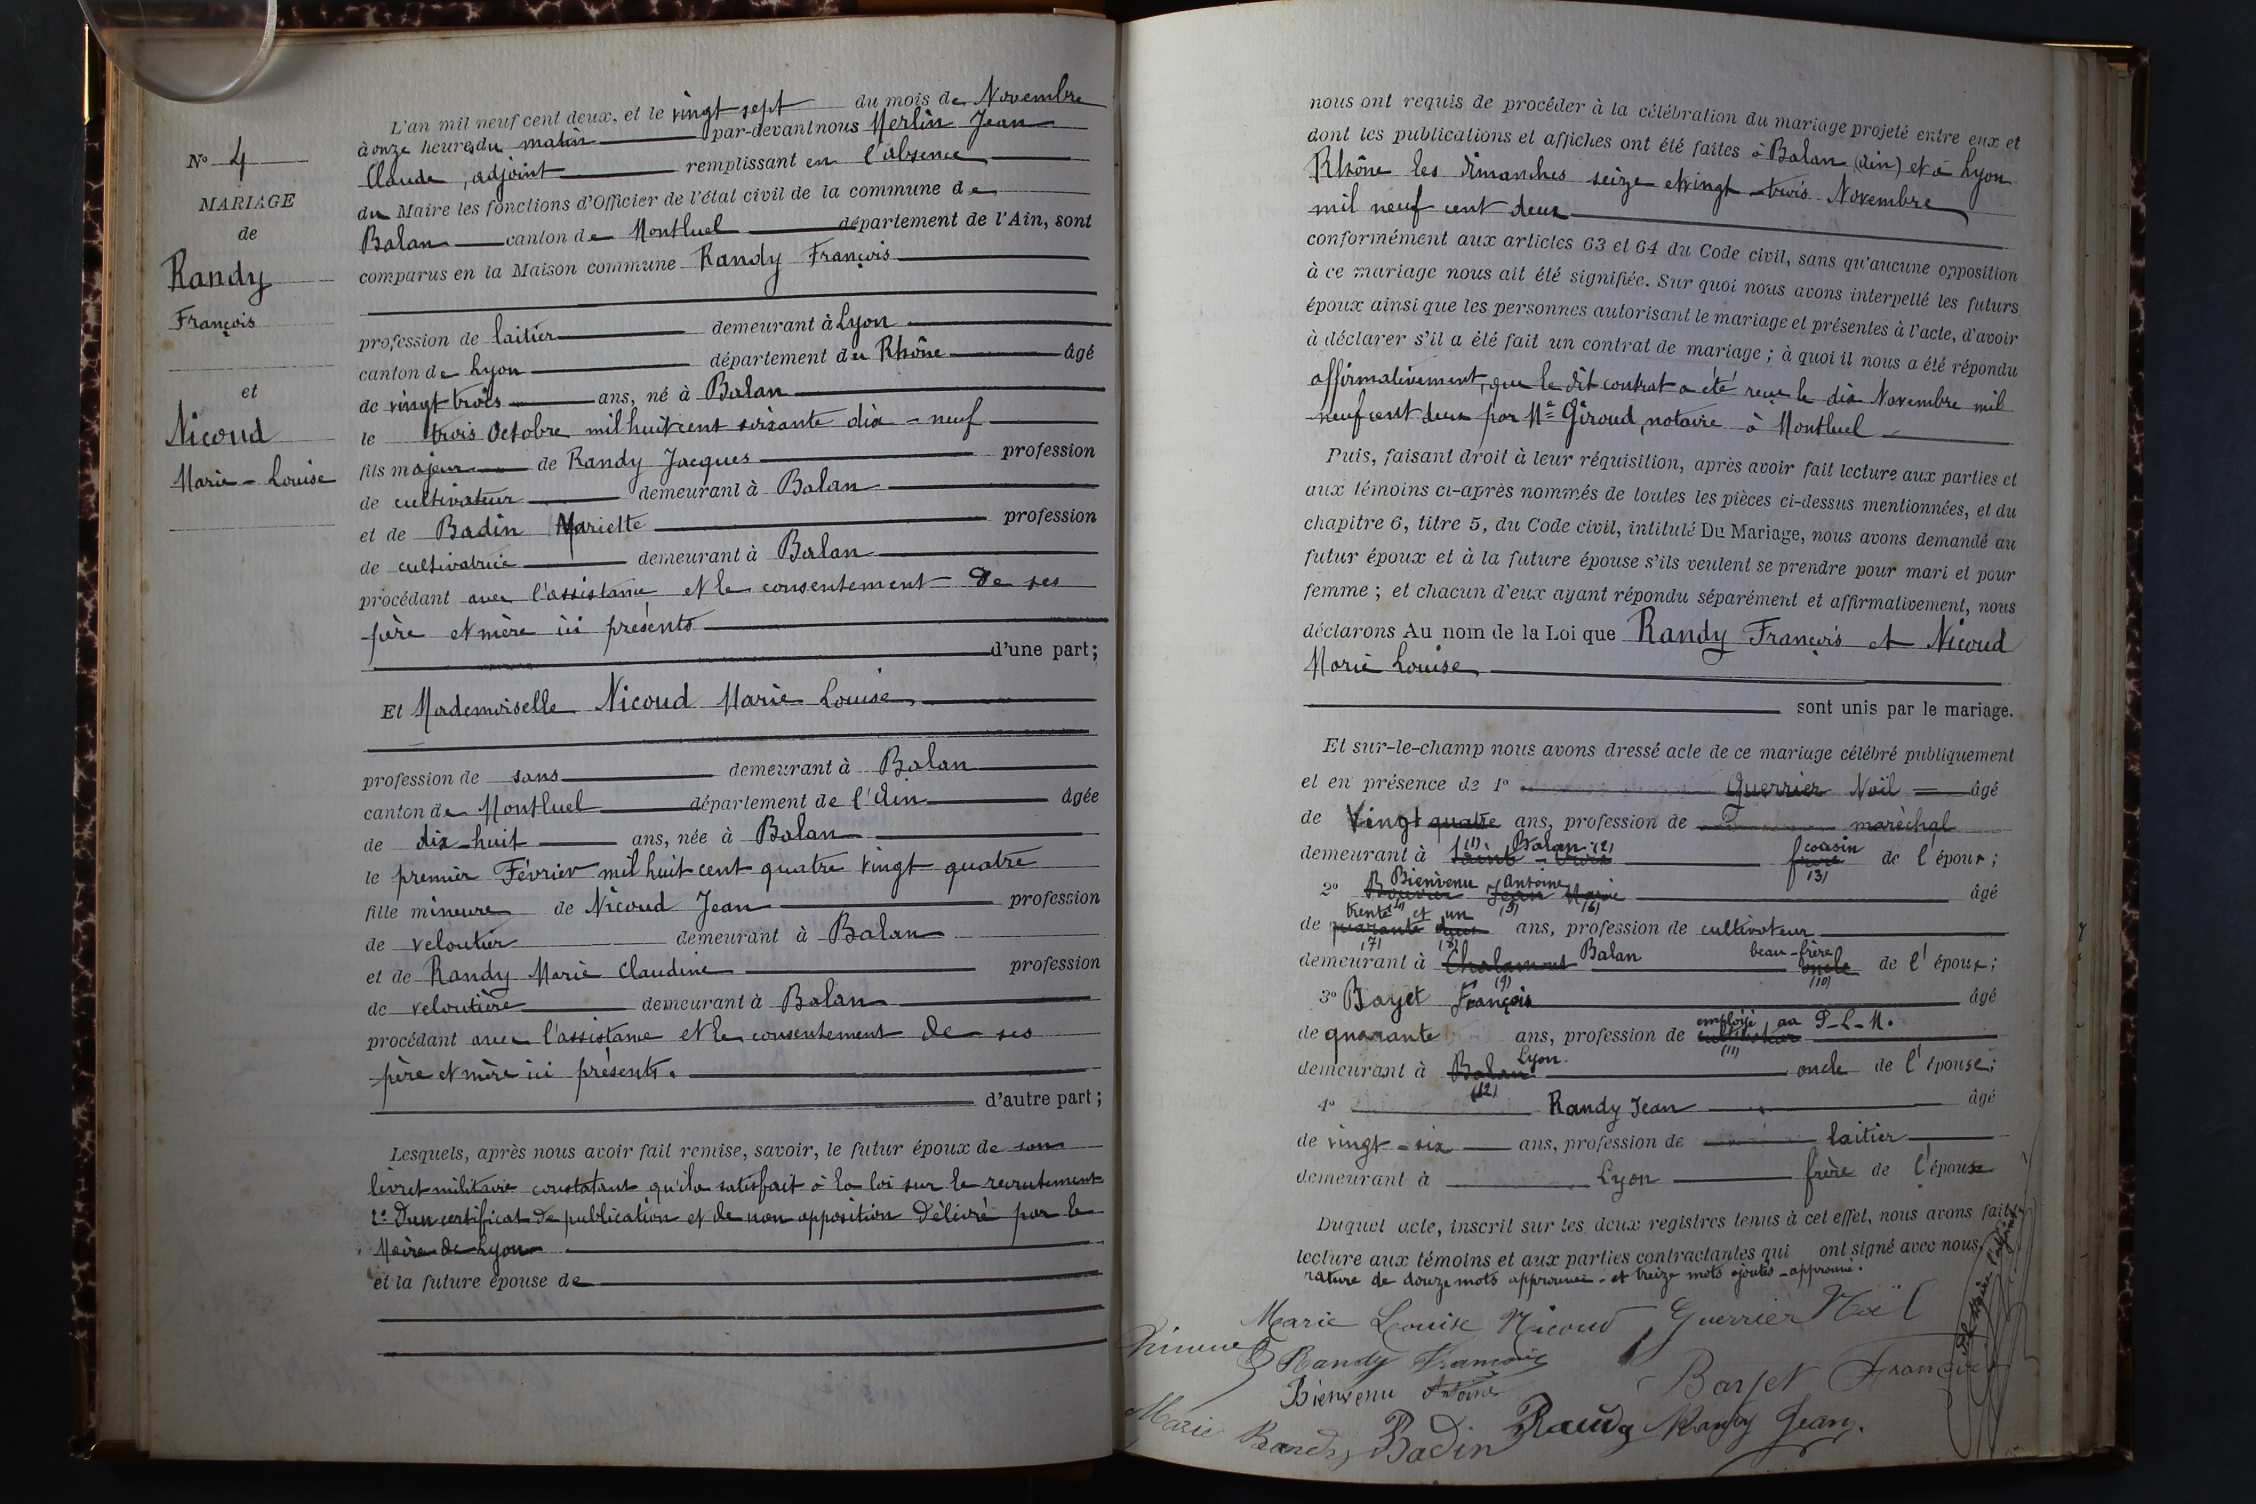 L'an mil neuf cent deux, et le vingt sept du mois de Novembre
à onze heures du matin par-devant nous Merlin Jean
Claude, adjoint remplissant en l'absence
du Maire les fonctions d'Officier de l'état civil de la commune de
Balan canton de Montluel département de l'Ain, sont
comparus en la Maison commune Randy François
profession de laitier demeurant à Lyon
canton de Lyon département du Rhône âgé
de vingt trois ans, né à Balan
le trois Octobre mil huit cent soixante dix-neuf
fils majeur de Randy Jacques profession
de cultivateur demeurant à Balan
et de Badin Mariette profession
de cultivatrice demeurant à Balan
procédant avec l'assistance et le consentement de ses
père et mère ici présents
d'une part;
Et Mademoiselle Nicoud Marie Louise,
profession de sans demeurant à Balan
canton de Montluel département de l'Ain âgée
de dix-huit ans, née à Balan
le premier Février mil huit cent quatre vingt quatre
fille mineure de Nicoud Jean profession
de veloutier demeurant à Balan
et de Randy Marie Claudine profession
de veloutière demeurant à Balan
procédant avec l'assistance et le consentement de ses
père et mère ici présents.
d'autre part;
Lesquels, après nous avoir fait remise, savoir, le futur époux de son
livret militaire constatant qu'il a satisfait à la loi sur le recrutement
2° D'un certificat de publication et de non opposition délivré par le
Maire de Lyon
et la future épouse de
N° 4
MARIAGE
de
Randy
François
et
Nicoud
Marie-Louise
nous ont requis de procéder à la célébration du mariage projeté entre eux et
dont les publications et affiches ont été faites à Balan (Ain) et à Lyon
Rhône les dimanches seize et vingt-trois Novembre
mil neuf cent deux
conformément aux articles 63 et 64 du Code civil, sans qu'aucune opposition
à ce mariage nous ait été signifiée. Sur quoi nous avons interpellé les futurs
époux ainsi que les personnes autorisant le mariage et présentes à l'acte, d'avoir
à déclarer s'il a été fait un contrat de mariage; à quoi il nous a été répondu
affirmativement, que le dit contrat a été reçu le dix Novembre mil
neuf cent deux par Me Giroud, notaire à Montluel
Puis, faisant droit à leur réquisition, après avoir fait lecture aux parties et
aux témoins ci-après nommés de toutes les pièces ci-dessus mentionnées, et du
chapitre 6, titre 5, du Code civil, intitulé Du Mariage, nous avons demandé au
futur époux et à la future épouse s'ils veulent se prendre pour mari et pour
femme; et chacun d'eux ayant répondu séparément et affirmativement, nous
déclarons Au nom de la Loi que Randy François et Nicoud
Marie Louise
sont unis par le mariage.
Et sur-le-champ nous avons dressé acte de ce mariage célébré publiquement
et en présence de 1° Guerrier Noël âgé
de Vingt quatre ans, profession de maréchal
(1) Balan (2) cousin
demeurant à Sainte-Croix frère de l'époux;
(3)
Bienvenu Antoine
2° Bouvier Jean Marie âgé
trente (4) et un (5) (6)
de quarante deux ans, profession de cultivateur
(7) (8) Balan beau-frère
demeurant à Chalamont oncle de l'époux;
(9) (10)
3° Bayet François âgé
employé au P-L-M.
de quarante ans, profession de cultivateur
(11)
Lyon.
demeurant à Balan oncle de l'épouse;
(12)
4° Randy Jean âgé
de vingt-six ans, profession de laitier
demeurant à Lyon frère de l'épouse
Duquel acte, inscrit sur les deux registres tenus à cet effet, nous avons fait
lecture aux témoins et aux parties contractantes qui ont signé avec nous.
rature de douze mots approuvée - et treize mots ajoutés - approuvé.
Marie Louise Nicoud Guerrier Noël
Randy François
Bienvenu Antoine Bayet François
Marie Randy Badin Randy Randy Jean.